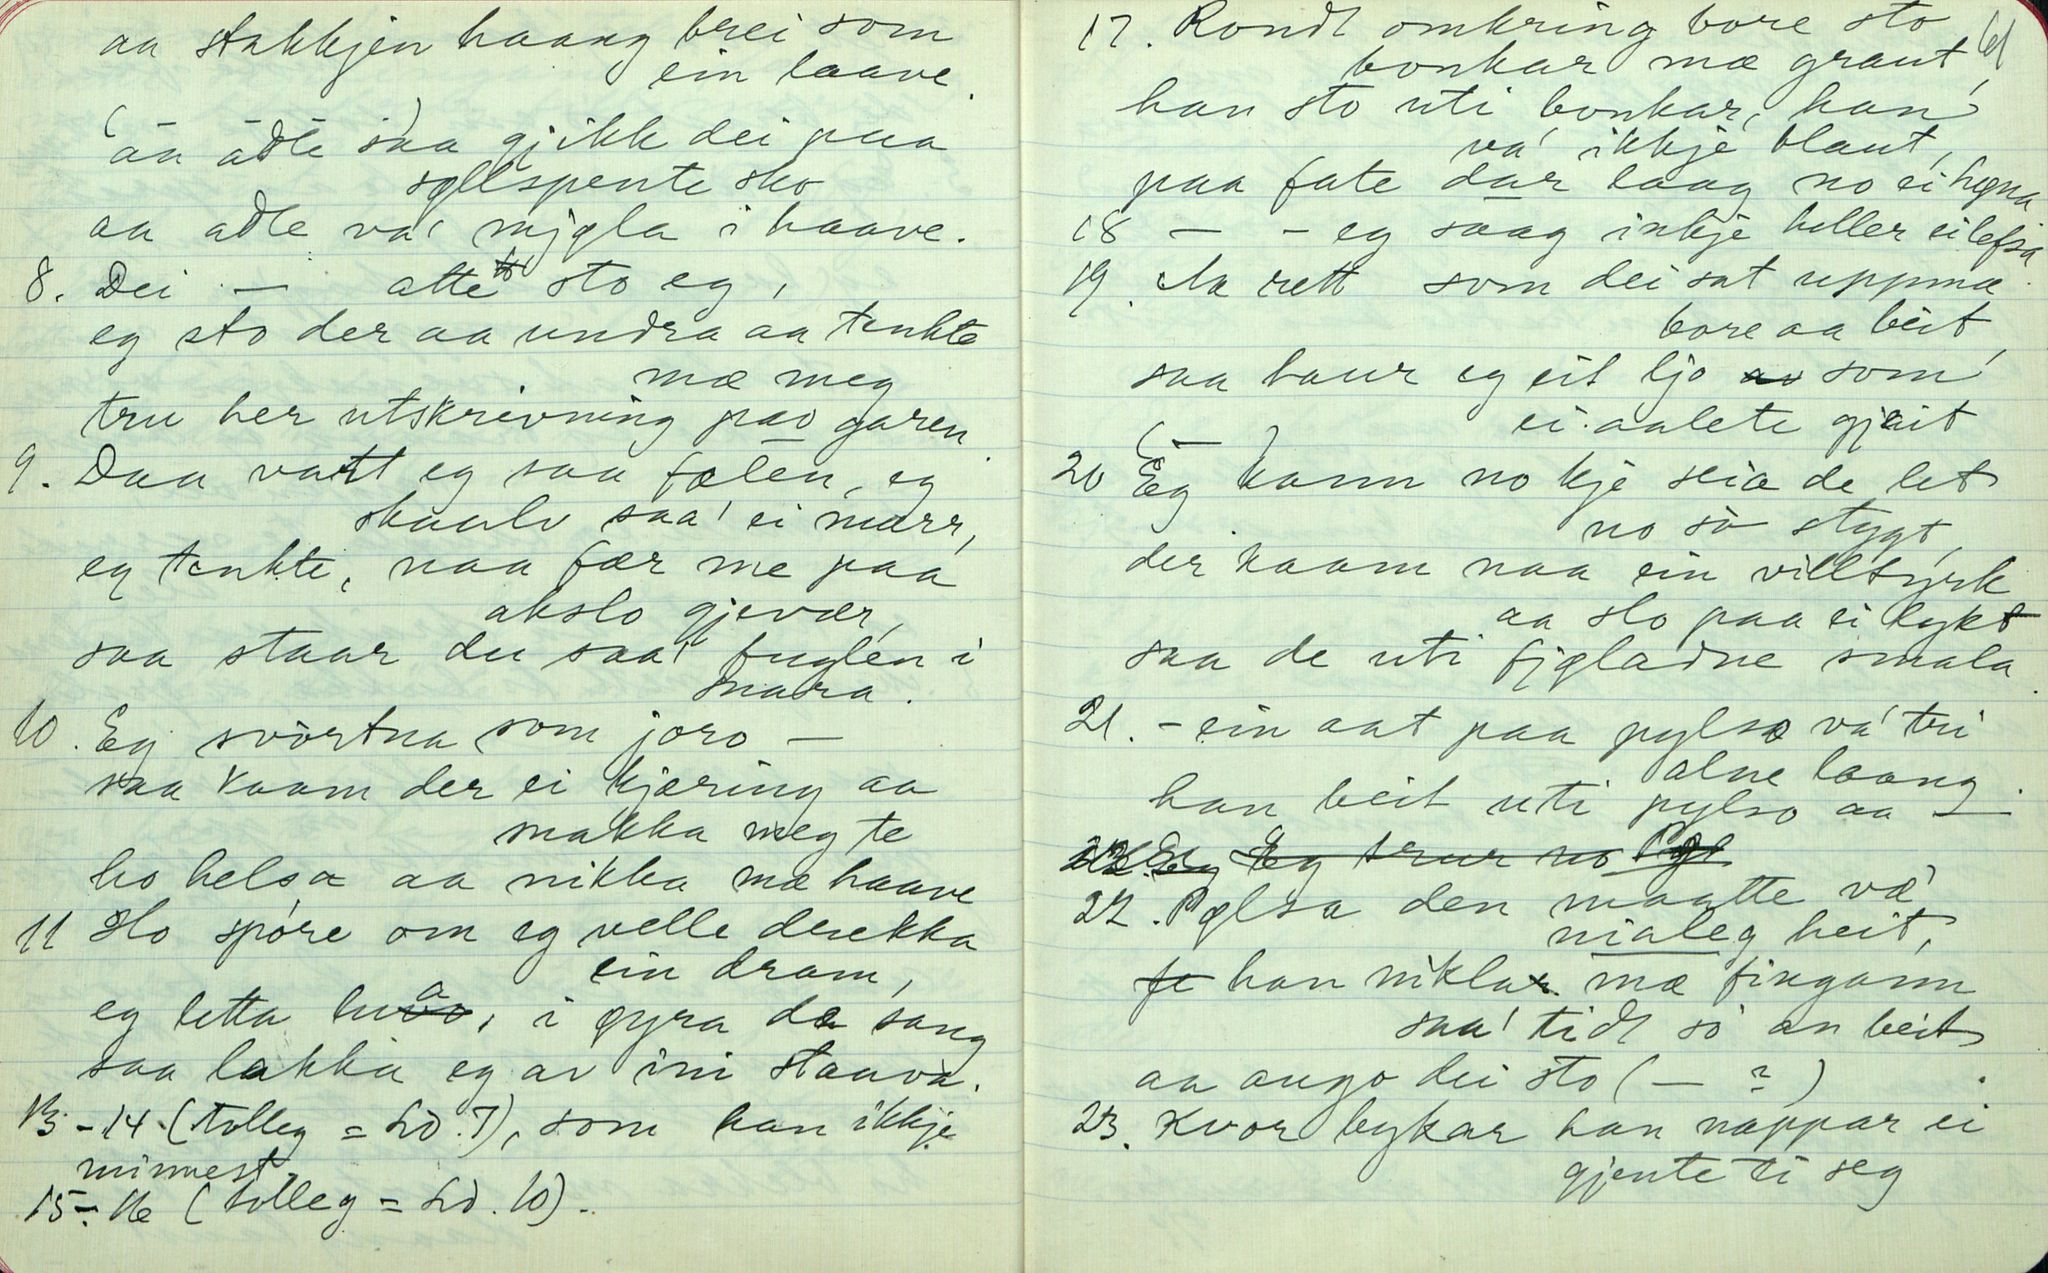 aa stakkjen haang brei som
ein laave.
(aa adle) saa gjikk dei paa
sylspente sko
aa adle va' mjøla i haave.
8. Dei — atte sto eg,
eg sto der aa undra aa tenkte
mæ meg
tru her utskrivning pao garen.
9. Daa vartt eg saa fælen, eg
skaalv saa' ei marr,
eg tenkte, naa fær me paa
akslo gjevær,
saa staar du saa' fuglen i
snara.
10. Eg svòrtna som joro —
saa kaam der ei kjæring aa
snakka meg te
ho helsa aa nikka mæ haave
11 Ho spóre om eg velle drekka
ein dram,
eg letta huva, i øyra da sang
saa lakka eg av ini staava.
13 - 14. (tolleg = Ld. 7), som han ikkje
minnest.
15 - 16 (tolleg = Ld. 10).
61
17. Rondt omkring bore sto
bonkar mæ graut,
han sto uti bonkar, han
va' ikkje blaut,
paa fate dar laag no ei høna
18 — - eg saag inkje heller ei lefsa
19. Aa rett som dei sat uppmæ
bore aa beit,
saa haur eg eit ljo som
ei aalete gjeit
(—)
20 Eg kann no kje seia de let
no sò stygt,
der kaam naa ein villtyrk
aa slo paa ei lykt
saa de uti fjøladne smala.
21. - ein aat paa pylsa va' tri
alne laang
han beit uti pylso aa —.
22. Eg Eg trur no Pøl
22. Pølsa den maatte væ'
nialeg heit,
han nikla mæ fingann
saa' tidt sò an beit
aa augo dei sto (— ?).
23. Kvor bykar han nappar ei
gjente ti seg